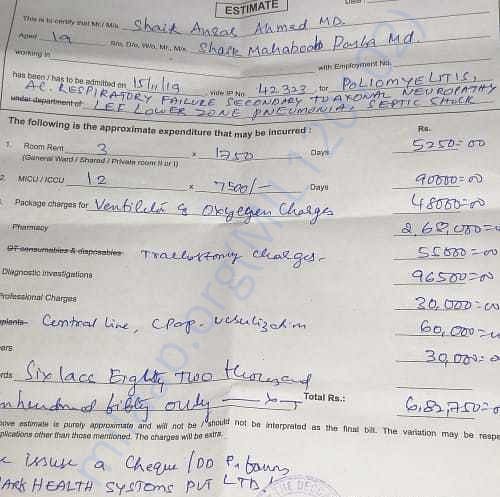 ESTIMATE
This is to certify that Mr./ M/s. Shaik Ansar Ahmed MD.
Aged 19 S/o, D/o, W/o, Mr., M/s. Shaik Mahaboob Md.
working in with Employment No.
has been / has to be admitted on 15/11/19 vide IP No 42323 for POLIOMYELITIS,
AC. RESPIRATORY FAILURE SECONDARY TO AXONAL NEUROPATHY
under department of LEF LOWER ZONE PNEUMONIA, SEPTIC SHOCK
The following is the approximate expenditure that may be incurred : Rs.
1. Room Rent 3 x 1750 Days 5250=00
(General Ward / Shared / Private room II or I)
2. MICU / ICCU 12 x 7500/- Days 90000=00
Package charges for Ventilator & Oxyegen Charges 48000=00
Pharmacy 2,68,000=
OT consumables & disposables Trallostomy Charges- 55000=00
Diagnostic investigations 96500=00
Professional Charges 30,000=00
mplants Central line, CPAP- nebulization 60,000=
ers 30,000=0
rds Six lacs Eighty two thousand
hundred fifty only Total Rs.: 6,82,750=0
ove estimate is purely approximate and will not be / should not be interpreted as the final bill. The variation may be respe
plications other than those mentioned. The charges will be extra.
issue a Cheque / DD favour
ARK HEALTH SYSTEMS PVT LTD.